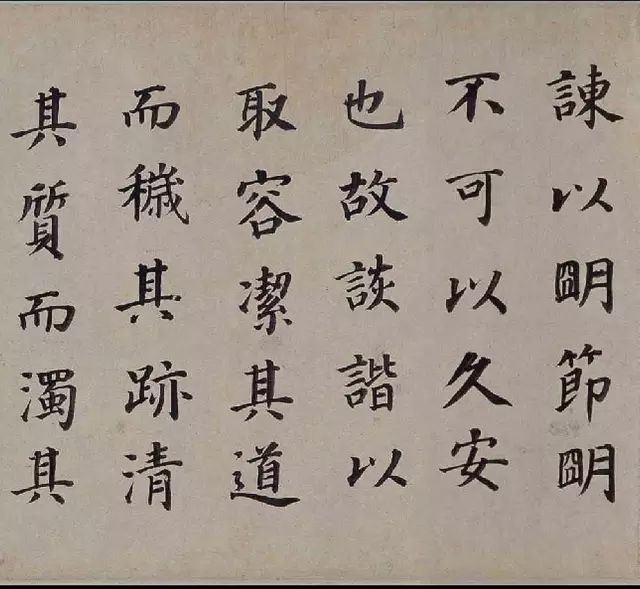 諫以明節明
不可以久安
也故談諧以
取容潔其道
而穢其跡清
其質而濁其